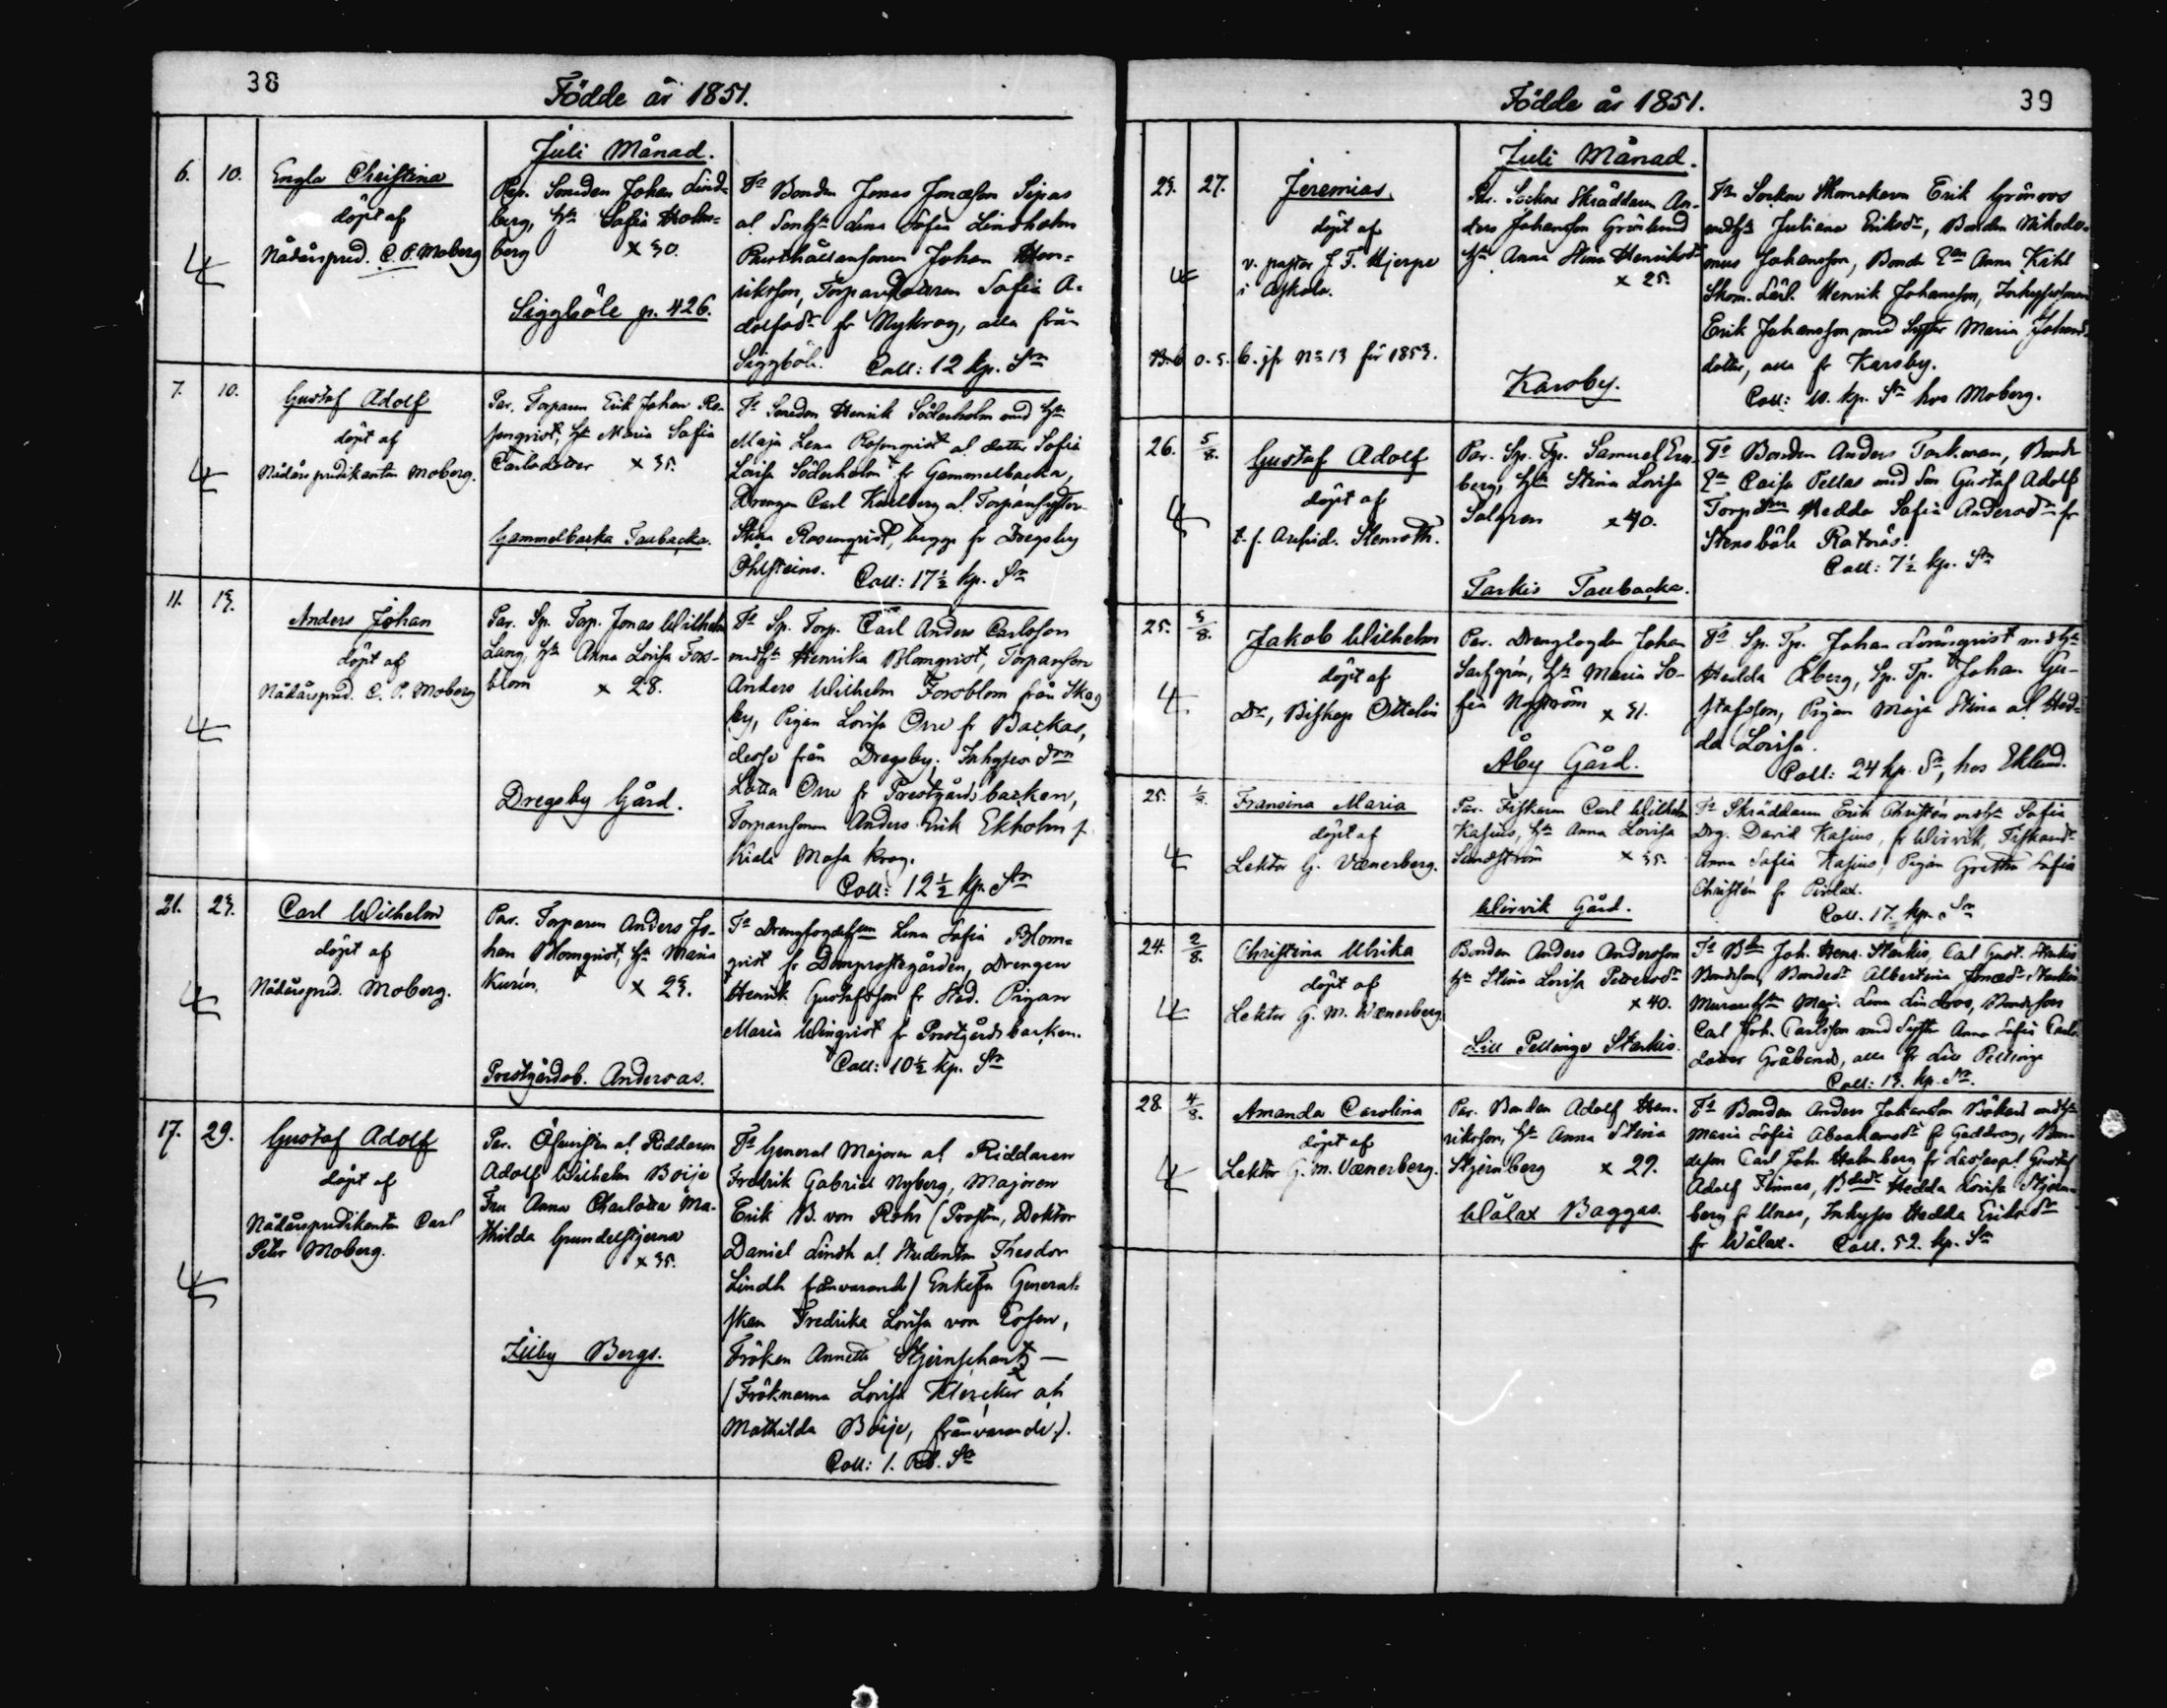 38
Födde år 1851.
Juli Månad.
6. 10. Engla Christina
döpt af
Nådårspred. C. P. Moberg
Par. Smeden Johan Lind-
berg, hu Sofia Holm-
berg × 30.
Siggböle p. 426.
Fa Bonden Jonas Jonasson Sipas
al Sonhu Lena Sofia Lindholm
Johan Hen-
riksson, Torparedottren Sofia A-
dolfsdr fr Nykrog, alla från
Siggböle. Coll: 12 kp. Sr
7. 10. Gustaf Adolf
döpt af
Nådårspredikanten Moberg.
Par. Torparen Erik Johan Ro-
senqvist, hu Maria Sofia
Carlsdotter × 35.
Gammelbacka Taubacka.
Fa Smeden Henrik Söderholm med hu
Maja Lena Rosenqvist al dotter Sofia
Lovisa Söderholm fr Gammelbacka,
Drengen Carl Karlberg al Torparesyster
Stina Rosenqvist, begge fr Dregsby
Öhlsteins. Coll: 17½ kp. Sr
11. 13. Anders Johan
döpt af
Nådårspred. C. P. Moberg
Par. Sp. Torp. Jonas Wilhelm
Lang, hu Anna Lovisa Fors-
blom × 28.
Dregsby Gård.
Fa Sp. Torp. Carl Anders Carlsson
med hu Henrika Blomqvist, Torparson
Anders Wilhelm Forsblom från Skav-
by, Pigan Lovisa Orre fr Backas,
desse från Dregsby. Inhyses dn
Lotta Orre fr Prestgårds backen,
Torparsonen Anders Erik Ekholm f.
Kiala Mosa krog.
Coll: 12½ kp. Sr
21. 23. Carl Wilhelm
döpt af
Nådårspred. Moberg.
Par. Torparen Anders Jo-
han Blomqvist, hu Maria
Kurén, × 23.
Prestgårdsb. Anderas.
Fa Drengfogdehun Lena Sofia Blom-
qvist fr Domprostegården, Drengen
Henrik Gustafsson fr Stad. Pigan
Maria Winqvist fr Prestgårds backen.
Coll: 10½ kp. Sr
17. 29. Gustaf Adolf
döpt af
Nådårspredikanten Carl
Peter Moberg.
Par. Öfversten al Riddaren
Adolf Wilhelm Boije
Fru Anna Charlotta Ma-
thilda Gyndelstjerna
× 35.
Jilby Bergs.
Fa General Majoren al Riddaren
Fredrik Gabriel Nyberg, Majoren
Erik B. von Rohr (Prosten, Doktor
Daniel Lindh al Studenten Theodor
Lindh frånvarande) Enkefru General-
skan Fredrika Lovisa von Essen,
Fröken Annette Stjernschantz —
(Fröknarna Lovisa Klercker och
Mathilda Boije, frånvarande).
Coll: 1. Rb. Sr
39
Födde år 1851.
Juli Månad.
23. 27. Jeremias.
döpt af
v. pastor J. F. Hjerpe
i Askola.
o. s. b. jfr No 13 för 1853.
Par. Sockne Skräddaren An-
ders Johansson Grönlund
hu Anna Stina Henriksdr
× 25.
Karsby.
Fa Sockne Skomakaren Erik Grönroos
med hu Juliana Eriksdr, Bonden Nikode-
mus Johansson, Bonde Enkan Anna Kihl
Skom. Lärl. Henrik Johansson,
Erik Johansson med Syster Maria Johans-
dotter, alla fr Karsby.
Coll: 10. kp. Sr hos Moberg.
26. 5/8. Gustaf Adolf
döpt af
t. f. Stenroth.
Par. Sp. Tp. Samuel Ern-
berg, hu Stina Lovisa
Salgren × 40.
Tarkis Taubacka.
Fa Bonden Anders Tarkman, Bonde
Caisa Pellas med Son Gustaf Adolf
Hedda Sofia Andersdr fr
Stensböle Ratnäs.
Coll: 7½ kp. Sr
25. 3/8. Jakob Wilhelm
döpt af
Dr, Biskop Ottelin
Par. Drengfogden Johan
hu Maria So-
fia Nyström × 31.
Åby Gård.
Fa Sp. Tp. Johan Lönnqvist med hu
Hedda Åberg, Sp. Tp. Johan Gu-
stafsson, Pigan Maja Stina al Hed-
da Lovisa.
Coll: 24 kp. Sr, hos Eklund.
25. Fransina Maria
döpt af
Lektor G. Wænerberg.
Par. Fiskaren Carl Wilhelm
Kasius, hu Anna Lovisa
Sandström × 35.
Wirvik Gård.
Fa Skräddaren Erik Christén med hu Sofia
Drg. David Kasius, fr Wirvik, Fiskaredr
Anna Sofia Kasius, Pigan Gretha Sofia
Christén fr Pirlax.
Coll. 17. kp. Sr
24. 2/8. Christina Ulrika
döpt af
Lektor G. M. Wænerberg.
Bonden Anders Andersson
hu Stina Lovisa Pettersdr
× 40.
Lill Pellinge Sterkis.
Fa Joh. Henr. Sterkis, Carl Gust. Sterkis
Bondeson, Bondedr Albertina Jonasdr Sterkis
Maj. Lena Lindroos, Bondeson
Carl Joh. Carlsson med Syster Anna Sofia Carls-
dotter Gråbends, alla fr Lill Pellinge
Coll: 13. kp. Sr.
28. 4/8. Amanda Carolina
döpt af
Lektor G. M. Wænerberg.
Par. Bonden Adolf Hen-
riksson, hu Anna Stina
Stjernberg × 29.
Wålax Baggas.
Fa Bonden Anders Johansson Bökars med hu
Maria Sofia Abrahamsdr fr Gaddrag, Bon-
deson Carl Joh. Holmberg fr Gustaf
Adolf Finnas, Hedda Lovisa Stjern-
berg fr Unas, Inhyses Hedda Eriksdr
fr Wålax. Coll. 52. kp. Sr